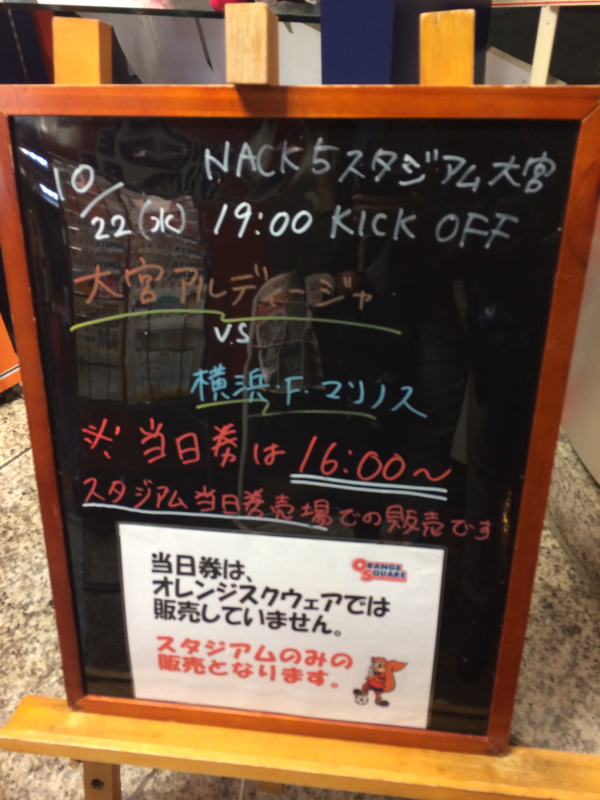 NACK5スタジアム大宮
10/22(水) 19:00 KICK OFF
大宮アルディージャ
V.S
横浜・F・マリノス
※当日券は 16:00〜
スタジアム当日券売場での販売です
当日券は、
オレンジスクウェアでは
販売していません。
ORANGE
SQUARE
スタジアムのみの
販売となります。